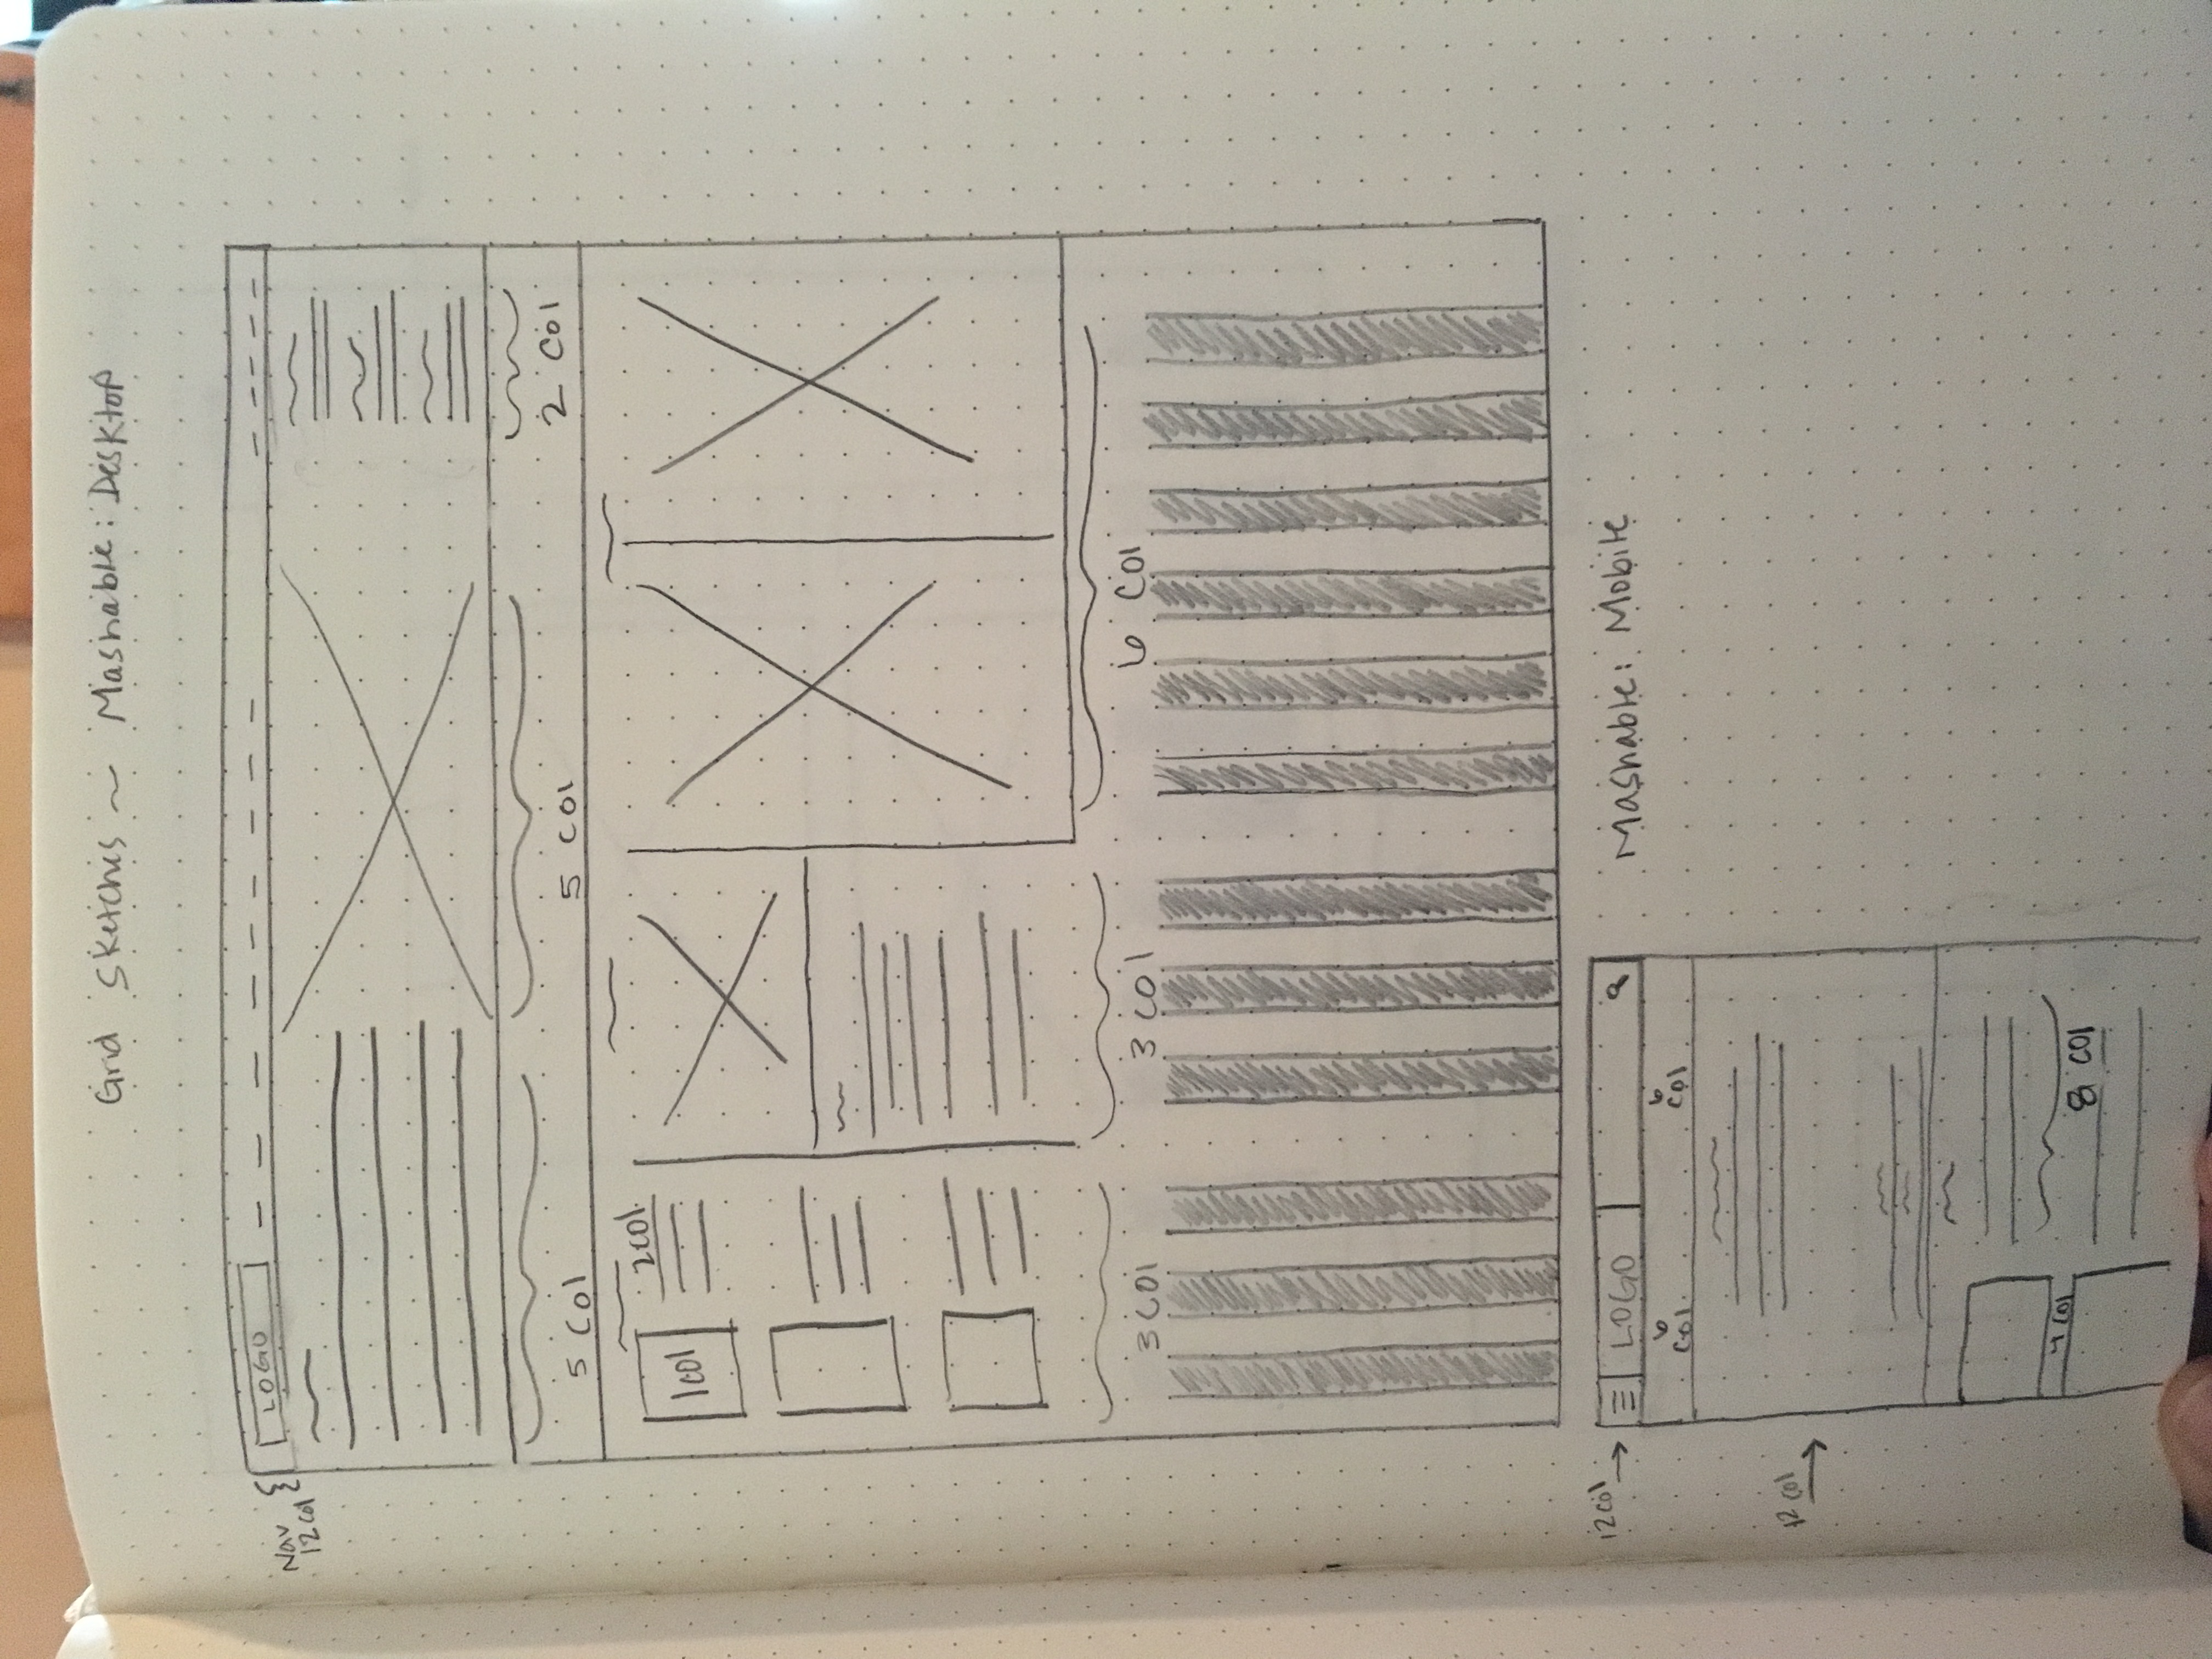 Grid Sketches ~ Mashable: Desktop
Nav
12 Col
LOGO
5 Col
5 Col
2 Col
1 Col
2 Col
3 Col
3 Col
6 Col
12 Col
LOGO
Mashable: Mobile
6
Col
6
Col
12 Col
4 Col
8 Col